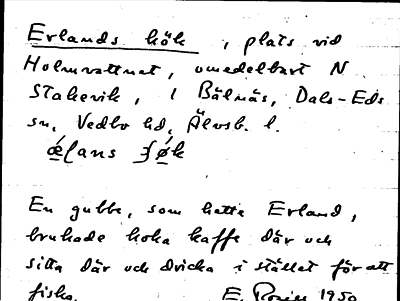 Erlands kök, plats vid
Holmvattnet, omedelbart N
Stakevik, i Bälnäs, Dals-Eds
sn, Vedbo hd, Älvsb. l.
En gubbe, som hette Erland,
brukade koka kaffe där och
sitta där och dricka i stället för att
fiska. E. 1950